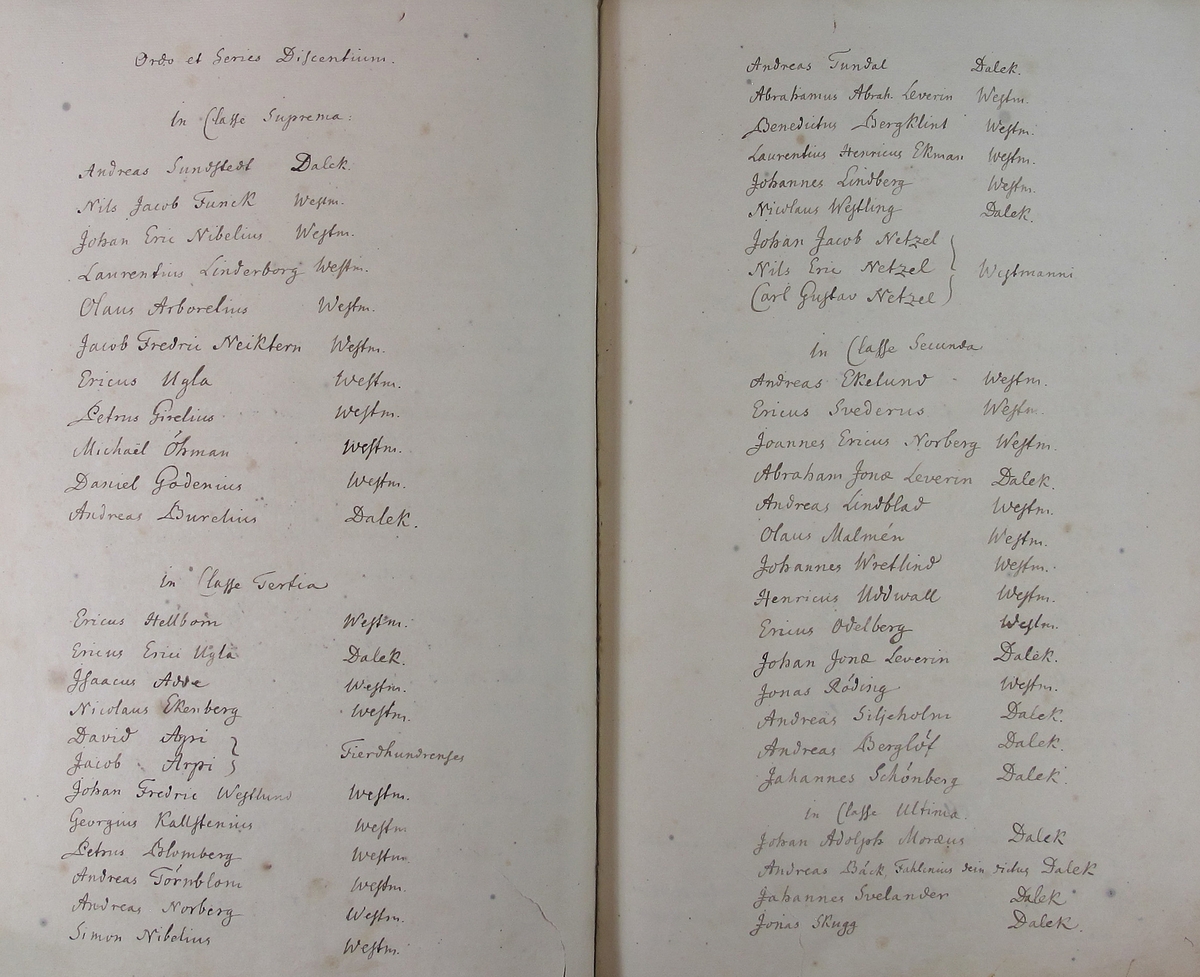 Ordo et Series Discentium.
in Classe Suprema:
Andreas Sundstedt Dalek.
Nils Jacob Funck Westm.
Johan Eric Nibelius Westm.
Laurentius Linderborg Westm.
Olaus Arborelius Westm.
Jacob Fredric Neiktern Westm.
Ericus Ugla Westm.
Petrus Girelius Westm.
Michaël Öhman Westm.
Daniel Godenius Westm.
Andreas Burelius Dalek.
in Classe Tertia
Ericus Hellbom Westm.
Ericus Erici Ugla Dalek.
Isaacus Adde Westm.
Nicolaus Ekenberg Westm.
David Arpi
Jacob Arpi } Fierdhundrenses
Johan Fredric Westlund Westm.
Georgius Kallstenius Westm
Petrus Blomberg Westm.
Andreas Törnblom Westm.
Andreas Norberg Westm.
Simon Nibelius Westm.
Andreas Tundal Dalek.
Abrahamus Abrah. Leverin Westm.
Benedictus Bergklint Westm.
Laurentius Henricus Ekman Westm.
Johannes Lindberg Westm.
Nicolaus Westling Dalek.
Johan Jacob Netzel
Nils Eric Netzel } Westmanni
Carl Gustav Netzel
in Classe Secunda
Andreas Ekelund Westm.
Ericus Svederus Westm.
Joannes Ericus Norberg Westm.
Abraham Jonæ Leverin Dalek.
Andreas Lindblad Westm.
Olaus Malmén Westm.
Johannes Wretlind Westm.
Henricus Uddwall Westm.
Ericus Odelberg Westm.
Johan Jonæ Leverin Dalek.
Jonas Röding Westm.
Andreas Siljeholm Dalek.
Andreas Berglöf Dalek.
Jahannes Schönberg Dalek.
in Classe Ultima.
Johan Adolph Moræus Dalek
Andreas Bäck, Fahlinius dein dictus Dalek
Jahannes Svelander Dalek
Jonas Skugg Dalek.